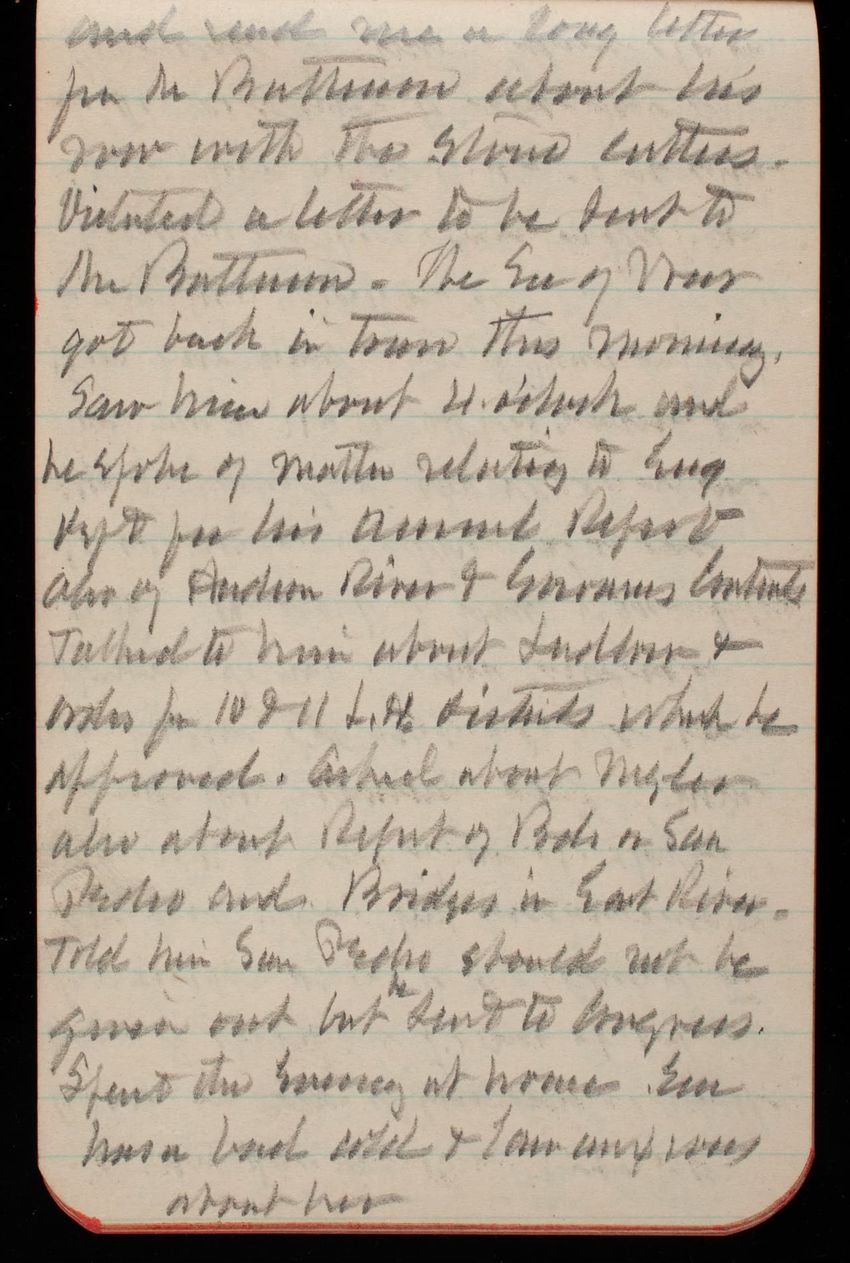 and read me a long letter
from Mr Bultman about his
row with the stone cutters.
Dictated a letter to be sent to
Mr Bultman. The Sec of War
got back in town this morning.
Saw him about 4 o'clock and
he spoke of matter relating to Eng
Dept for his Annual Report
also of Hudson River & Gowanus Contracts
Talked to him about Ludlow &
orders for 10 & 11 L.H. districts which he
approved. Asked about
also about Report of Bds on San
Pedro and Bridges in East River.
Told him San Pedro should not be
given out but be sent to Congress.
Spent the Evening at home.
has a bad cold & I am anxious
about her